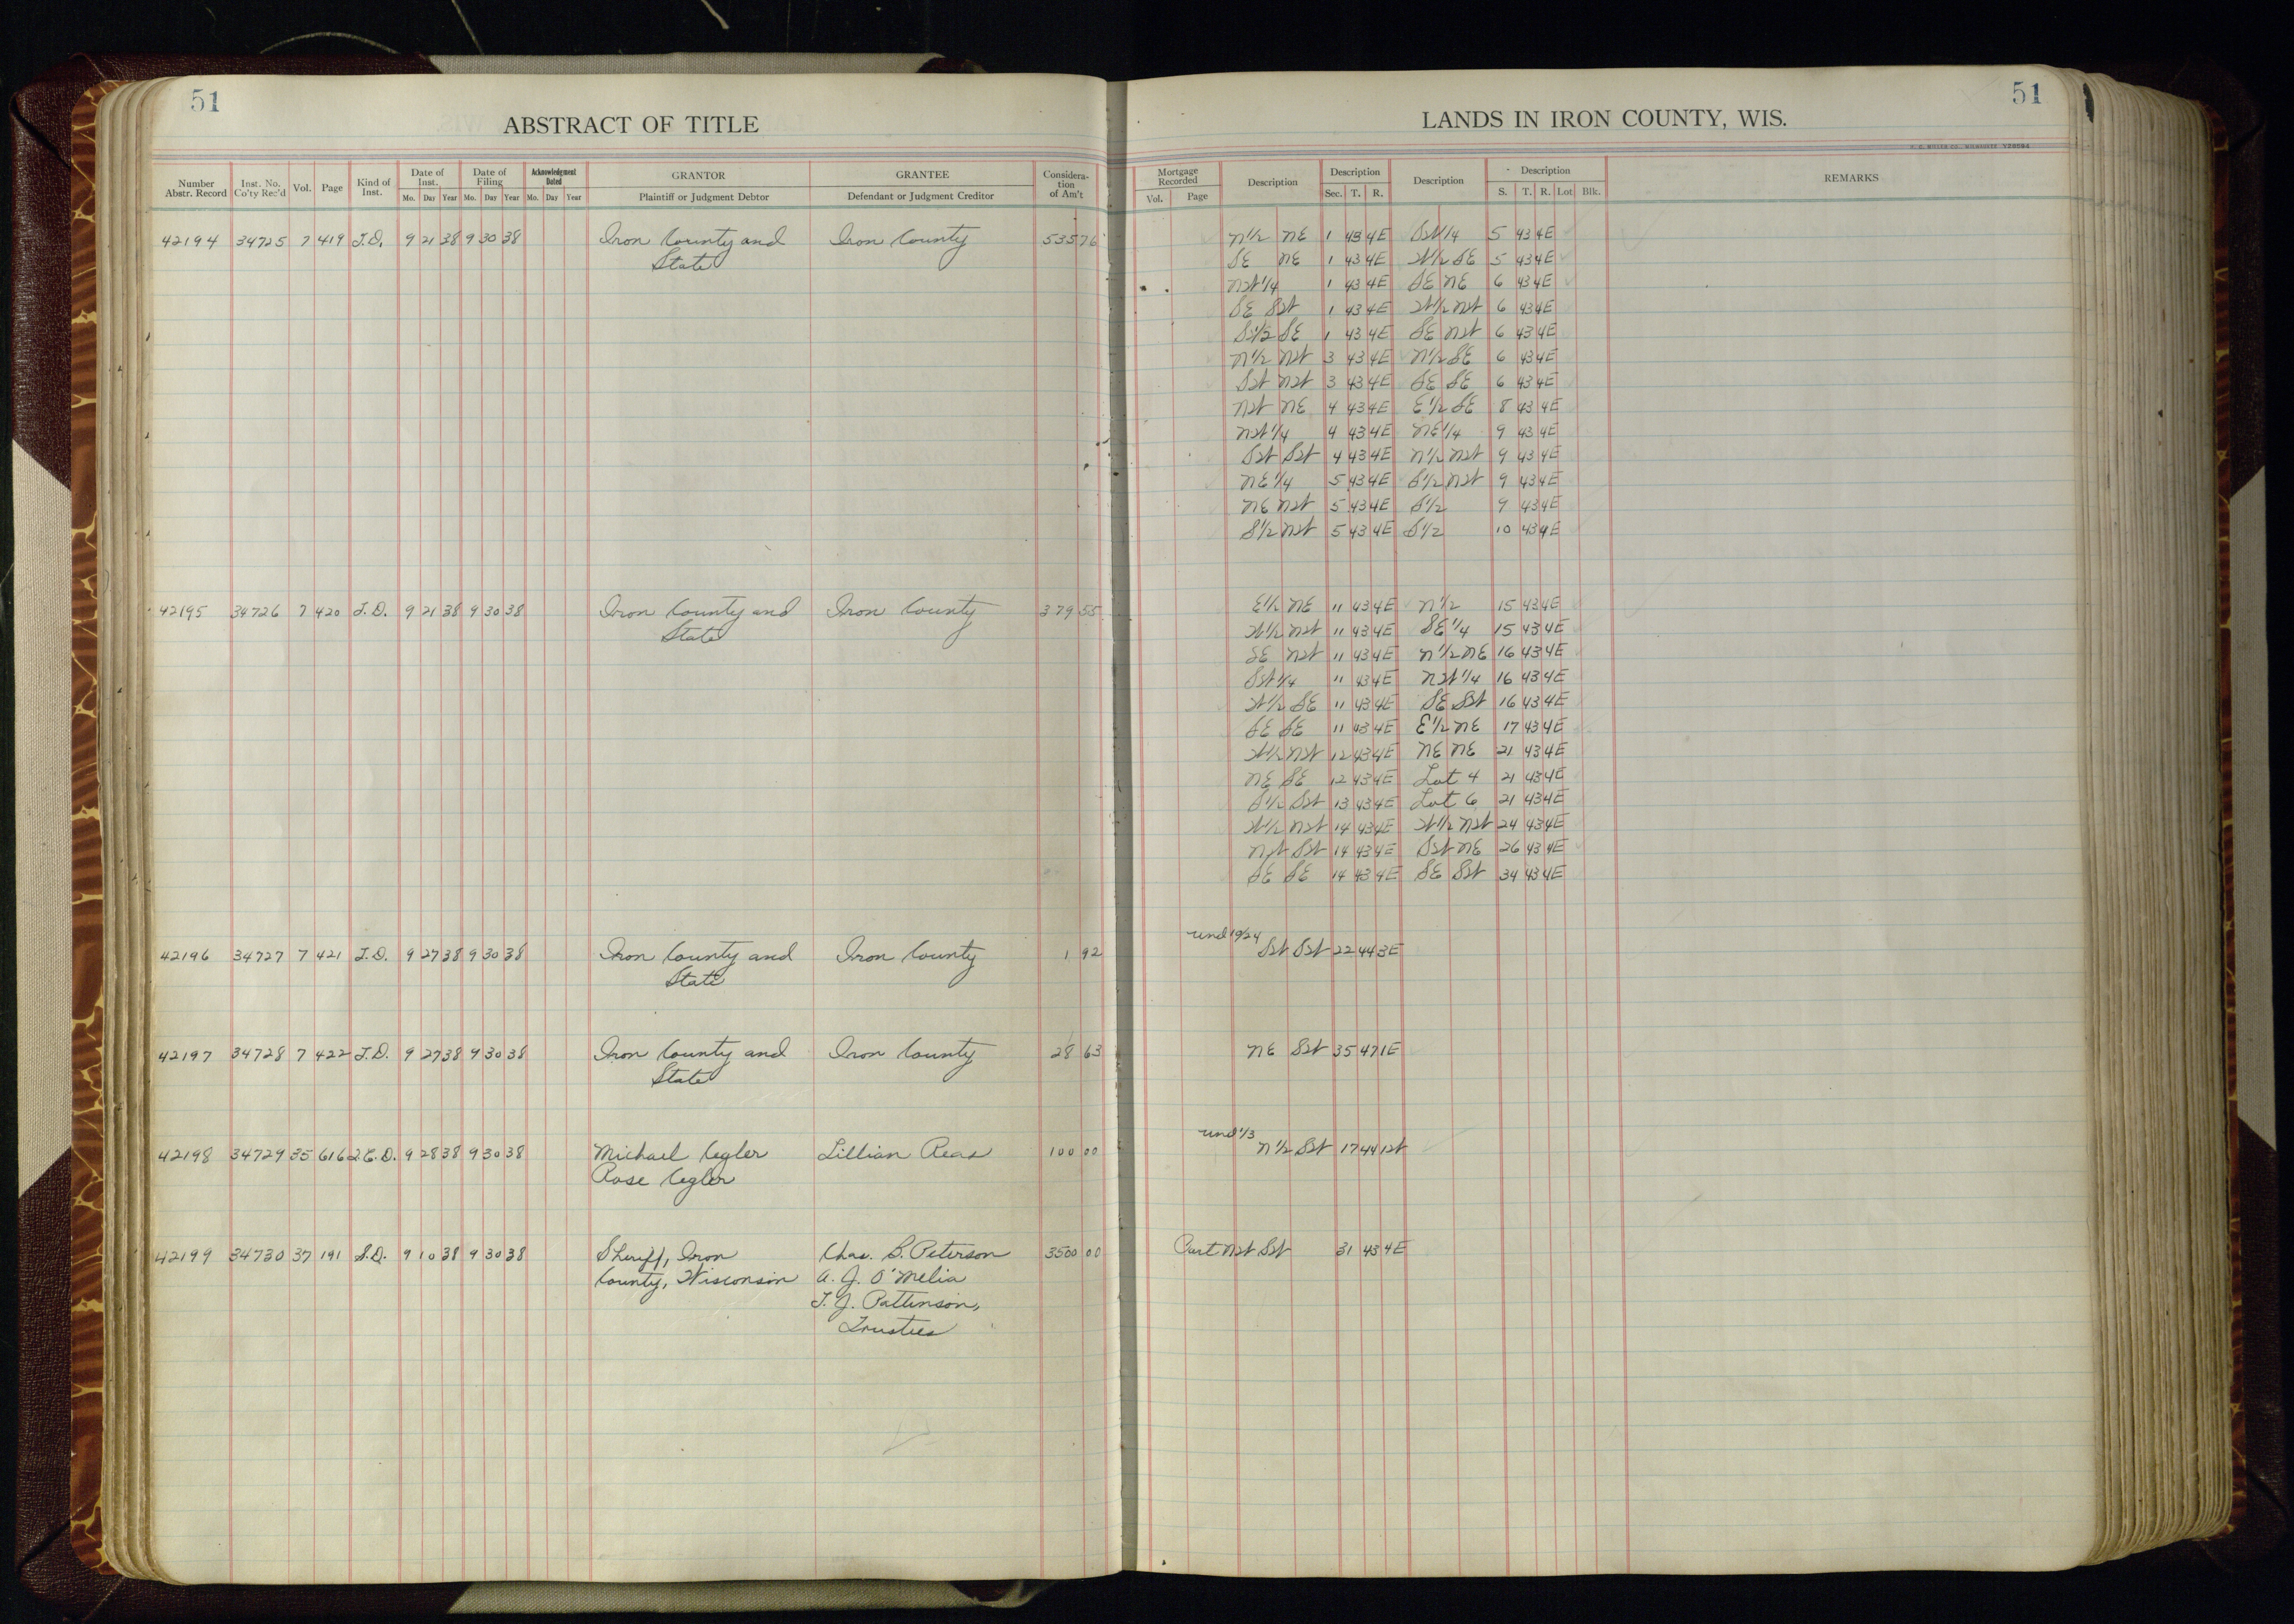 51
ABSTRACT OF TITLE
Number Abstr. Record Inst. No. Co'ty Rec'd Vol. Page Kind of Inst. Date of Inst. Mo. Day Year Date of Filing Mo. Day Year Acknowledgment Dated Mo. Day Year GRANTOR Plaintiff or Judgment Debtor GRANTEE Defendant or Judgment Creditor Considera-tion of Am't
42194 34725 7 419 T.D. 9 21 38 9 30 38 Iron County and Iron County 535 76
State
42195 34726 7 420 T.D. 9 21 38 9 30 38 Iron County and Iron County 379 55
State
42196 34727 7 421 T.D. 9 27 38 9 30 38 Iron County and Iron County 1 92
State
42197 34728 7 422 T.D. 9 27 38 9 30 38 Iron County and Iron County 28 63
State
42198 34729 35 616 2.C.D. 9 28 38 9 30 38 Michael Cegler Lillian Reas 100 00
Rose Cegler
42199 34730 37 191 S.D. 9 10 38 9 30 38 Sheriff, Iron Chas. B. Peterson 3500 00
County, Wisconsin A. J. O'Melia
T. J. Pattinson,
Trustees
51
LANDS IN IRON COUNTY, WIS.
H. C. MILLER CO., MILWAUKEE
Mortgage Recorded Vol. Page Description Description Sec. T. R. Description Description S. T. R. Lot Blk. REMARKS
N1/2 NE 1 43 4E SW1/4 5 43 4E
SE NE 1 43 4E W1/2 SE 5 43 4E
NW1/4 1 43 4E SE NE 6 43 4E
SE SW 1 43 4E W1/2 NW 6 43 4E
S1/2 SE 1 43 4E SE NW 6 43 4E
N1/2 NW 3 43 4E N1/2 SE 6 43 4E
SW NW 3 43 4E SE SE 6 43 4E
NW NE 4 43 4E E1/2 SE 8 43 4E
NW1/4 4 43 4E NE1/4 9 43 4E
SW SW 4 43 4E N1/2 NW 9 43 4E
NE1/4 5 43 4E S1/2 NW 9 43 4E
NE NW 5 43 4E S1/2 9 43 4E
S1/2 NW 5 43 4E S1/2 10 43 4E
E1/2 NE 11 43 4E N1/2 15 43 4E
W1/2 NW 11 43 4E SE1/4 15 43 4E
SE NW 11 43 4E N1/2 NE 16 43 4E
SW1/4 11 43 4E NW1/4 16 43 4E
W1/2 SE 11 43 4E SE SW 16 43 4E
SE SE 11 43 4E E1/2 NE 17 43 4E
W1/2 NW 12 43 4E NE NE 21 43 4E
NE SE 12 43 4E Lot 4 21 43 4E
S1/2 SW 13 43 4E Lot 6 21 43 4E
W1/2 NW 14 43 4E W1/2 NW 24 43 4E
NW SW 14 43 4E SW NE 26 43 4E
SE SE 14 43 4E SE SW 34 43 4E
und 19/24
SW SW 22 44 3E
NE SW 35 47 1E
und 1/3
N1/2 SW 17 44 1W
Part NW SW 31 43 4E